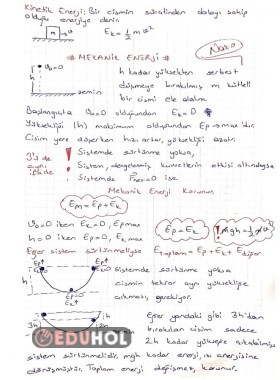 Kinetik Enerji: Bir cismin süratinden dolayı sahip
olduğu enerjiye denir.
m
v
Ek = ½ m v²
* MEKANİK ENERJİ *
v₀=0
h
zemin
h kadar yüksekten serbest
düşmeye bırakılmış m kütleli
bir cismi ele alalım.
Başlangıçta v₀=0 olduğundan Ek=0
Yüksekliği (h) maksimum olduğundan Ep → max'dır.
Cisim yere düşerken hızı artar, yüksekliği azalır.
3'ü de aynı
! Sistemde sürtünme yoksa,
Sistem, dengelenmiş kuvvetlerin etkisi altındaysa
Sistemde Fnet=0 ise
Mekanik Enerji Korunur.
Em = Ep + Ek
v₀=0 iken Ek=0, Ep max
h=0 iken Ep=0, Ek max
Ep = Ek
mgh = ½ m v²
Eğer sistem sürtünmeliyse Etoplam = Ep + Ek + Ediğer
Ep↑
Ek=0
Ep↑
h
Ep=0
Ek↑
Sistemde sürtünme yoksa
cismin tekrar aynı yüksekliğe
çıkması, gerekiyor.
h
3h
Eğer yandaki gibi 3h'dan
bırakılan cisim sadece
2h kadar yükseğe çıkabilmişse
sistem sürtünmelidir. mgh kadar enerji, ısı enerjisine
dönüşmüştür. Toplam enerji değişmez, korunur.
EDUHOL